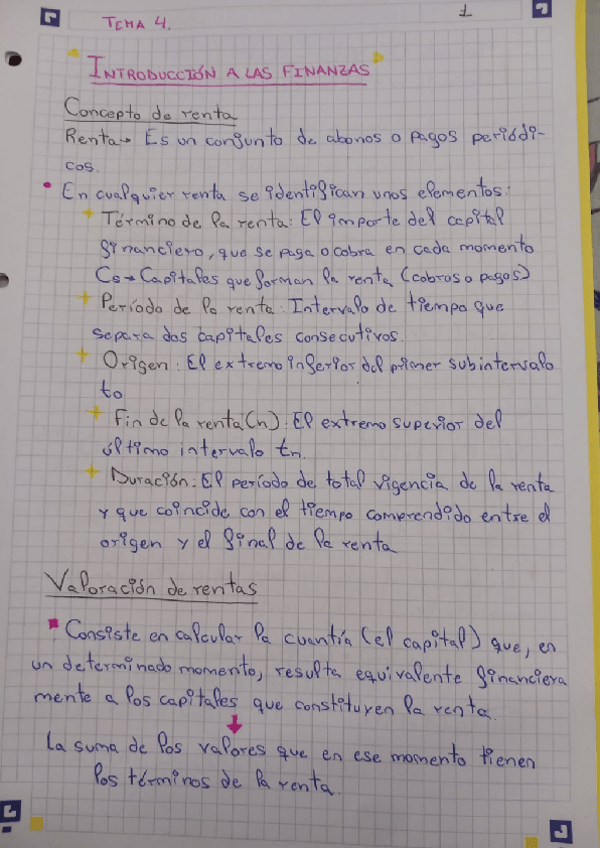 TEMA 4.
1
INTRODUCCIÓN A LAS FINANZAS
Concepto de renta
Renta→ Es un conjunto de abonos o pagos periódi-
cos.
• En cualquier renta se identifican unos elementos:
+ Término de la renta: El importe del capital
financiero, que se paga o cobra en cada momento
Cs→ Capitales que forman la renta (cobros o pagos)
+ Período de la renta: Intervalo de tiempo que
separa dos capitales consecutivos.
+ Origen: El extremo inferior del primer subintervalo
to
+ Fin de la renta (n): El extremo superior del
último intervalo tn.
+ Duración: El período de total vigencia de la renta
y que coincide con el tiempo comerendido entre el
origen y el final de la renta
Valoración de rentas
▪ Consiste en calcular la cuantía (el capital) que, en
un determinado momento, resulta equivalente financiera
mente a los capitales que constituyen la renta.
↓
La suma de los valores que en ese momento tienen
los términos de la renta.